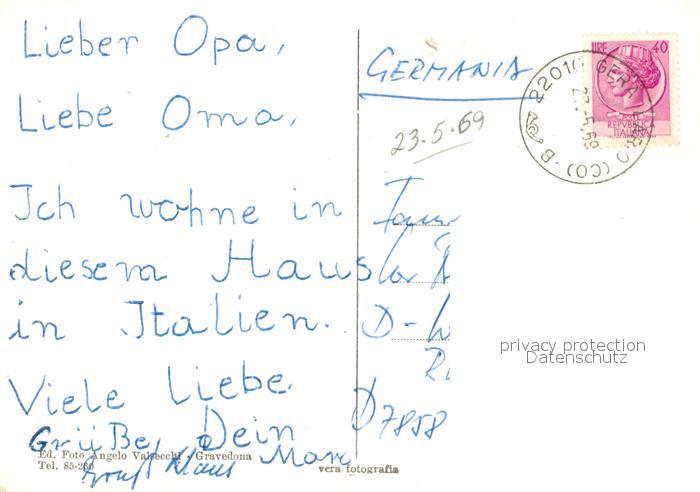 Lieber Opa,
Liebe Oma,
Ich wohne in
diesem Haus
in Italien.
Viele liebe
Grüße, Dein
Marc
Ed. Foto Angelo Valsecchi - Gravedona
Tel. 85-260
Klaus
vera fotografia
GERMANIA
23.5.69
LIRE 40
REPVBBLICA
ITALIANA
22010 GERA LARIO (CO) - B
5.69
D-
D 7858
privacy protection
Datenschutz